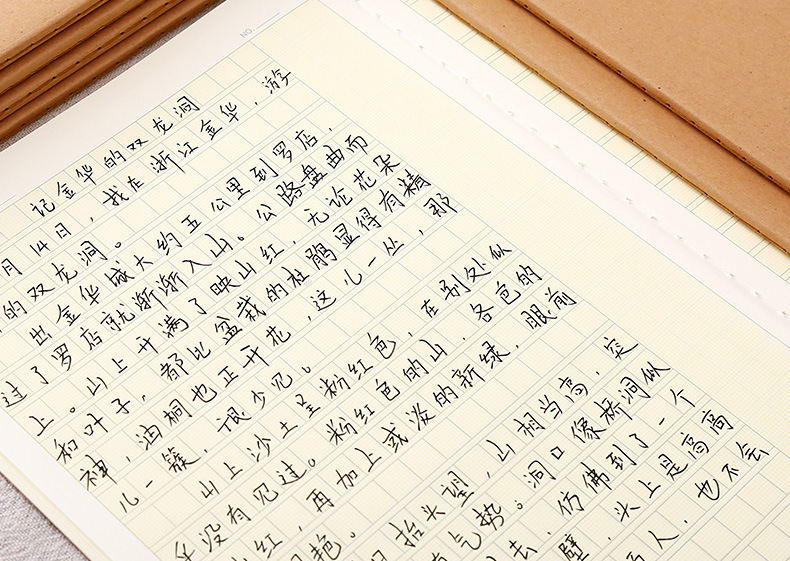 NO.
记金华的双龙洞
月14日，我在浙江金华，游
的双龙洞。
出金华城大约五公里到罗店，
过了罗店就渐渐入山。公路盘曲而
上。山上开满了映山红，无论花朵
和叶子，都比盆栽的杜鹃显得有精
神，油桐也正开花，这儿一丛，那
儿一簇，很少见。
山上沙土呈粉红色，在别处似
乎没有见过。粉红色的山，各色的
红，再加上或淡的新绿，眼前
艳。
抬头望，山相当高，突
有气势。洞口像桥洞似
去，仿佛到了一个
壁，头上是高高
人，也不会